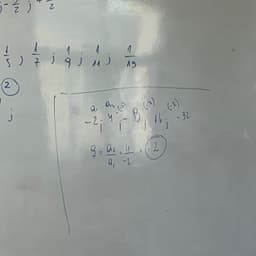 -1/2 ; + 1/2
1/5 ; 1/7 ; 1/9 ; 1/11 ; 1/19
2
;
a₁ a₂ (-2) (-2) (-2)
-2 ; 4 ; -8 ; 16 ; -32
q = a₂/a₁ = 4/-2 = -2